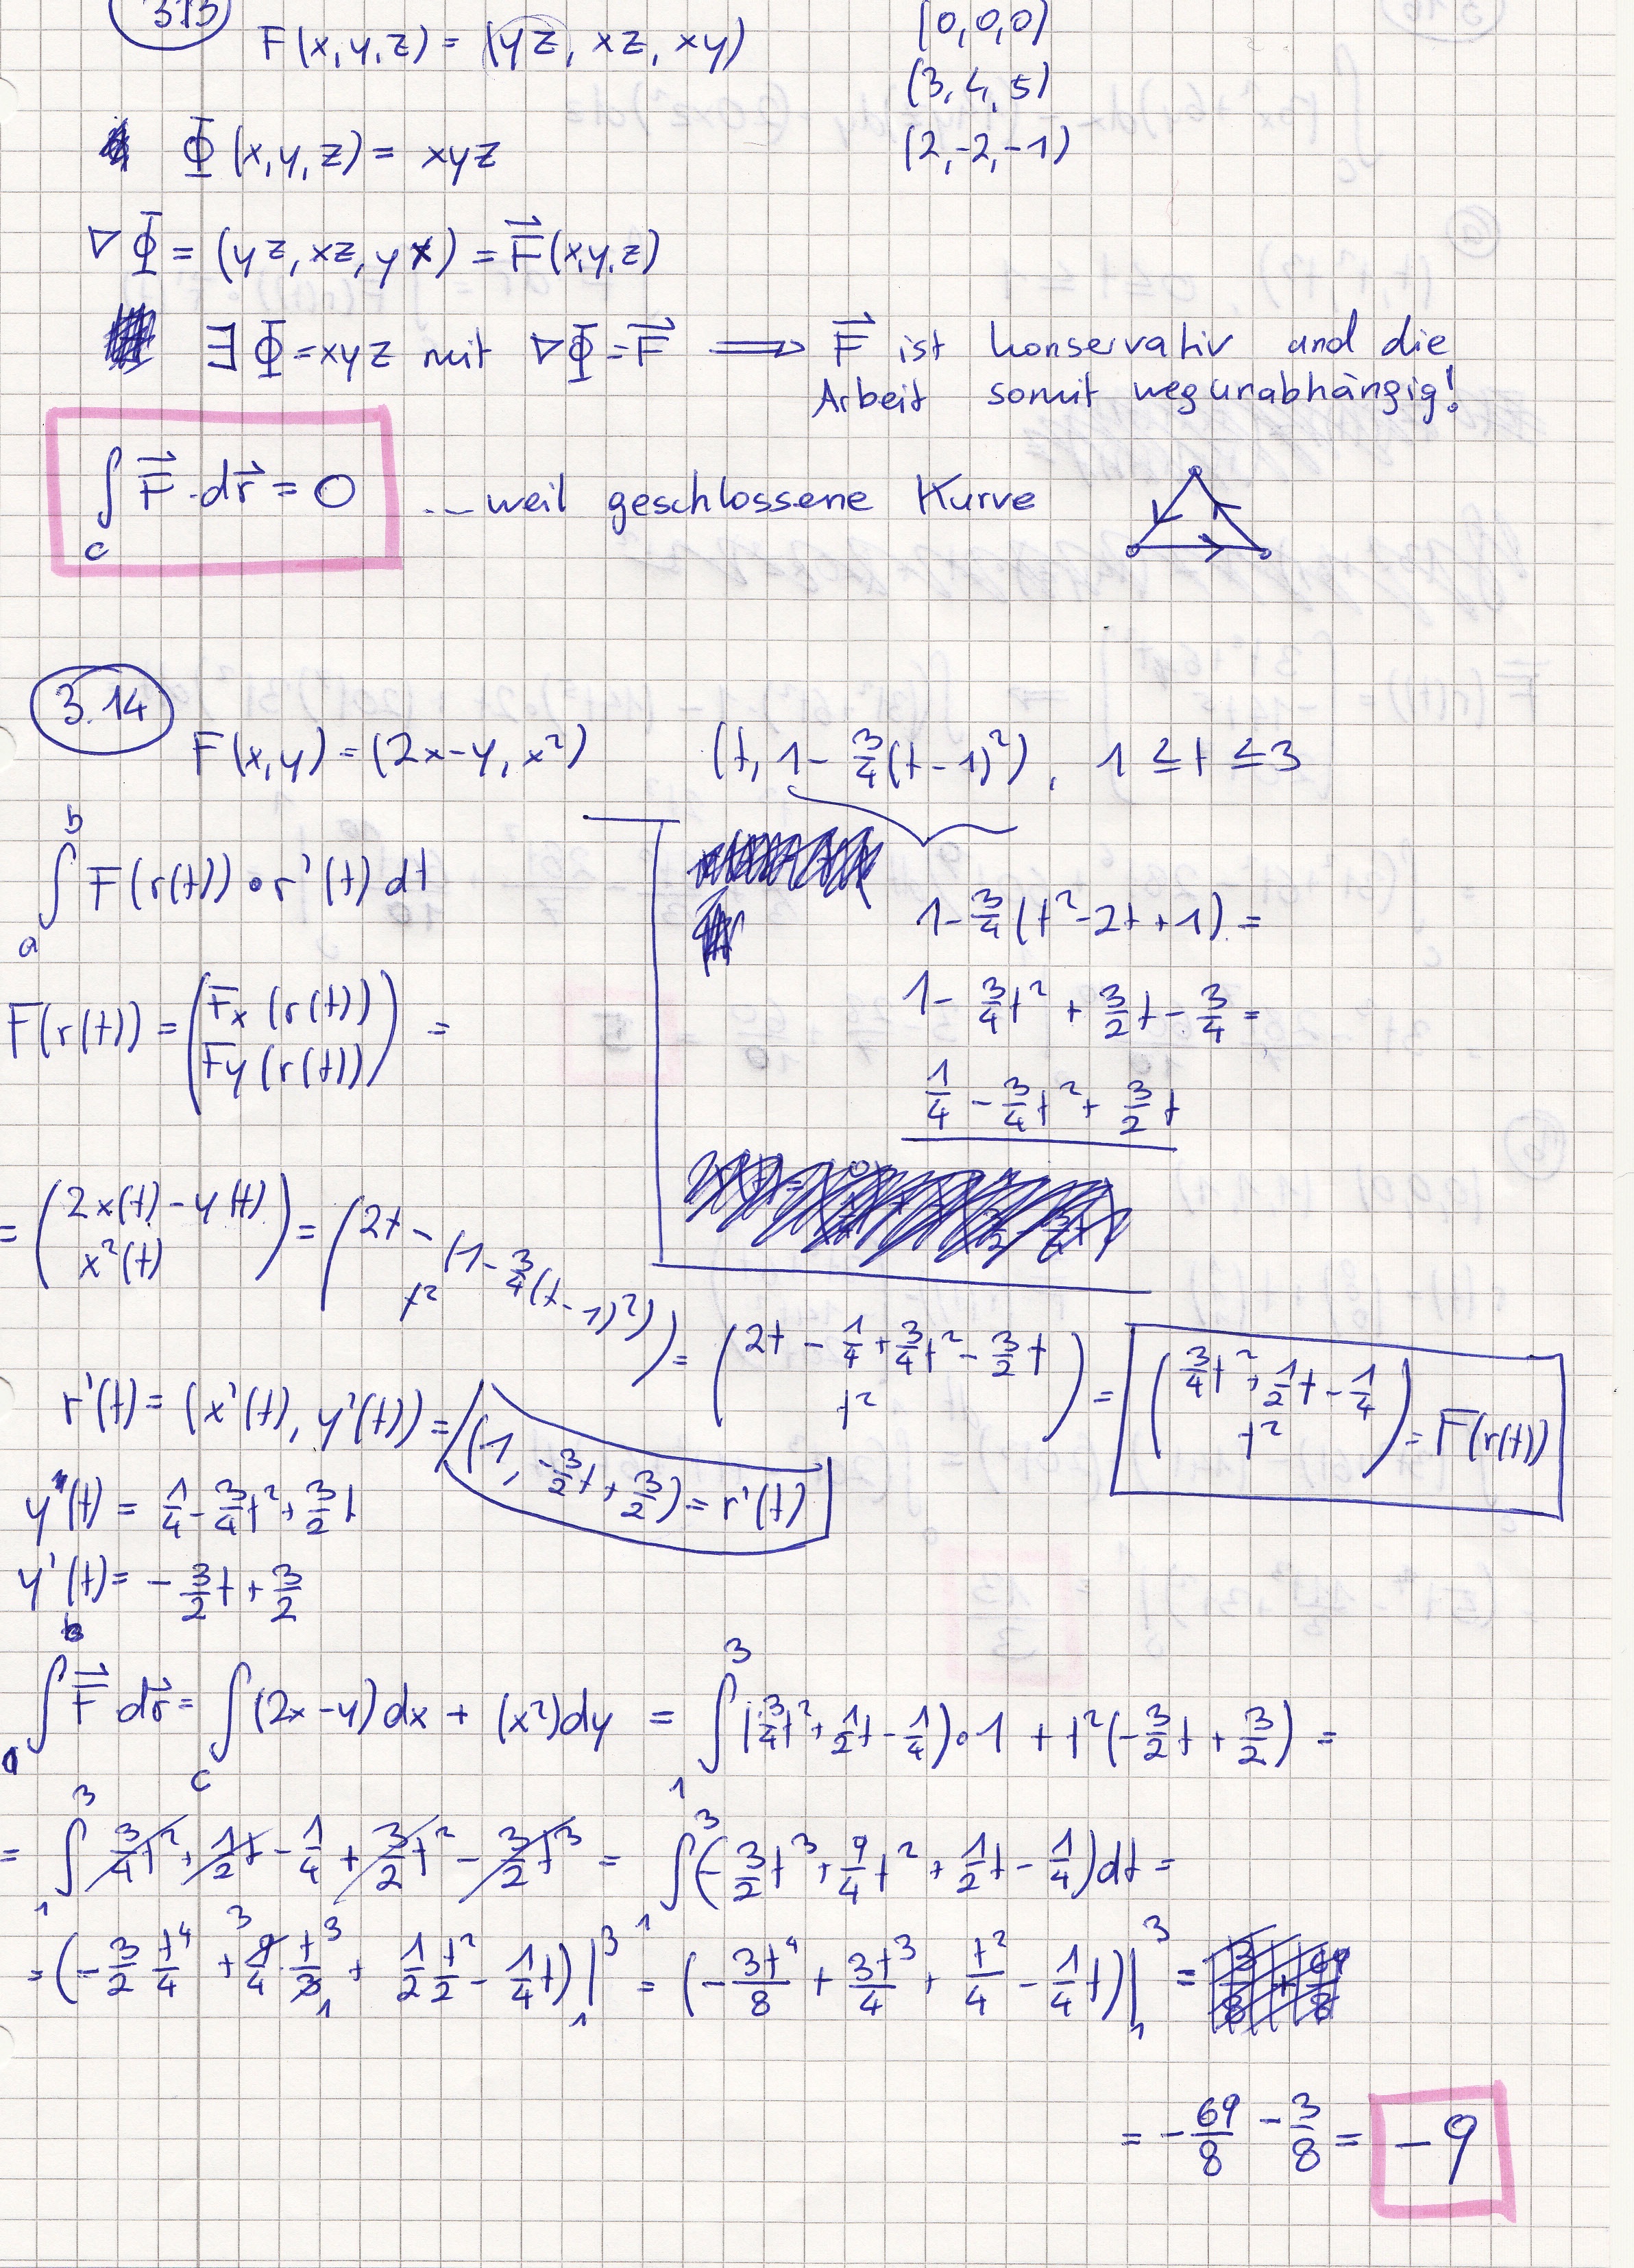 3.13
F(x,y,z) = (yz, xz, xy)
(0,0,0)
(3,4,5)
(2,-2,-1)
Φ(x,y,z) = xyz
∇Φ = (yz, xz, yx) = F⃗(x,y,z)
∃ Φ=xyz mit ∇Φ=F⃗ ⟹ F⃗ ist konservativ und die
Arbeit somit wegunabhängig!
∫_C F⃗·dr⃗ = 0 ...weil geschlossene Kurve
3.14
F(x,y) = (2x-y, x²) (t, 1- 3/4(t-1)²), 1 ≤ t ≤ 3
∫_a^b F(r(t)) ∘ r'(t) dt
1- 3/4(t²-2t+1) =
1- 3/4t² + 3/2t - 3/4 =
1/4 - 3/4t² + 3/2t
F(r(t)) = (Fx(r(t)) Fy(r(t))) =
= (2x(t) - y(t) x²(t)) = (2t - (1- 3/4(t-1)²) t²) = (2t - 1/4 + 3/4t² - 3/2t t²) = (3/4t² + 1/2t - 1/4 t²) = F(r(t))
r'(t) = (x'(t), y'(t)) = (1, -3/2t + 3/2) = r'(t)
y(t) = 1/4 - 3/4t² + 3/2t
y'(t) = - 3/2t + 3/2
∫_a^b F⃗ dr⃗ = ∫_C (2x-y)dx + (x²)dy = ∫_1^3 (3/4t² + 1/2t - 1/4)∘1 + t²(-3/2t + 3/2) =
= ∫_1^3 3/4t² + 1/2t - 1/4 + 3/2t² - 3/2t³ = ∫_1^3 (-3/2t³ + 9/4t² + 1/2t - 1/4)dt =
= (-3/2 t⁴/4 + 9/4 t³/3 + 1/2 t²/2 - 1/4t)|_1^3 = (-3t⁴/8 + 3t³/4 + t²/4 - 1/4t)|_1^3 =
= - 69/8 - 3/8 = -9